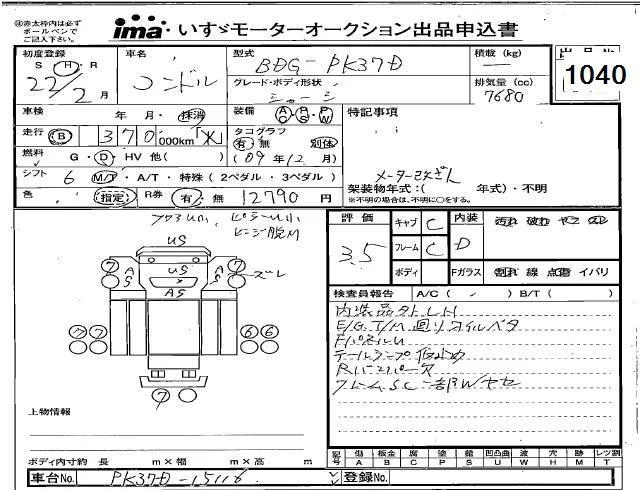 ④赤太枠内は必ず
ボールペンで
ご記入下さい。
ima いすゞモーターオークション出品申込書
初度登録 車名 型式 積載 (kg) 出品No.
S・H・R コンドル BDG-PK37D 1040
22/2月 グレード・ボディ形状 排気量 (cc)
シャーシ 7680
車検 年 月・抹消 装備 AC PS PW 特記事項
走行 B 370,000km「メ」 タコグラフ 有 無 別体
燃料 G・D・HV 他( ) (09年12月) メーター改ざん
シフト 6 M/T・A/T・特殊(2ペダル・3ペダル) 架装物年式:( 年式)・不明
色 (指定) R券 有・無 12790円 ※不明の場合は、不明に○をする。
評価 3.5 キャブ C 内装 D 汚れ 破れ ヤケ スレ
フレーム C
ボディ Fガラス 割れ 線 点書 イバリ
US
US
AS
A
S
A
S
ズレ
⑦ ⑦
⑦ ⑦ ⑥ ⑥
⑦
検査員報告 A/C ( ) B/T ( )
内装品外し LH
E/G.T/M 回りオイルベタ
FパネルU
テールランプ仮止め
Rバンパー欠
フレームSC一部Wヤセ
上物情報
ボディ内寸約 長 m×幅 m×高 m
記号 傷 A 板金 B 腐 C 塗 P 錆 S 凹凸曲 U 波 W 穴 H 跡 M レツ割 T
車台No. PK37D-15116 登録No.